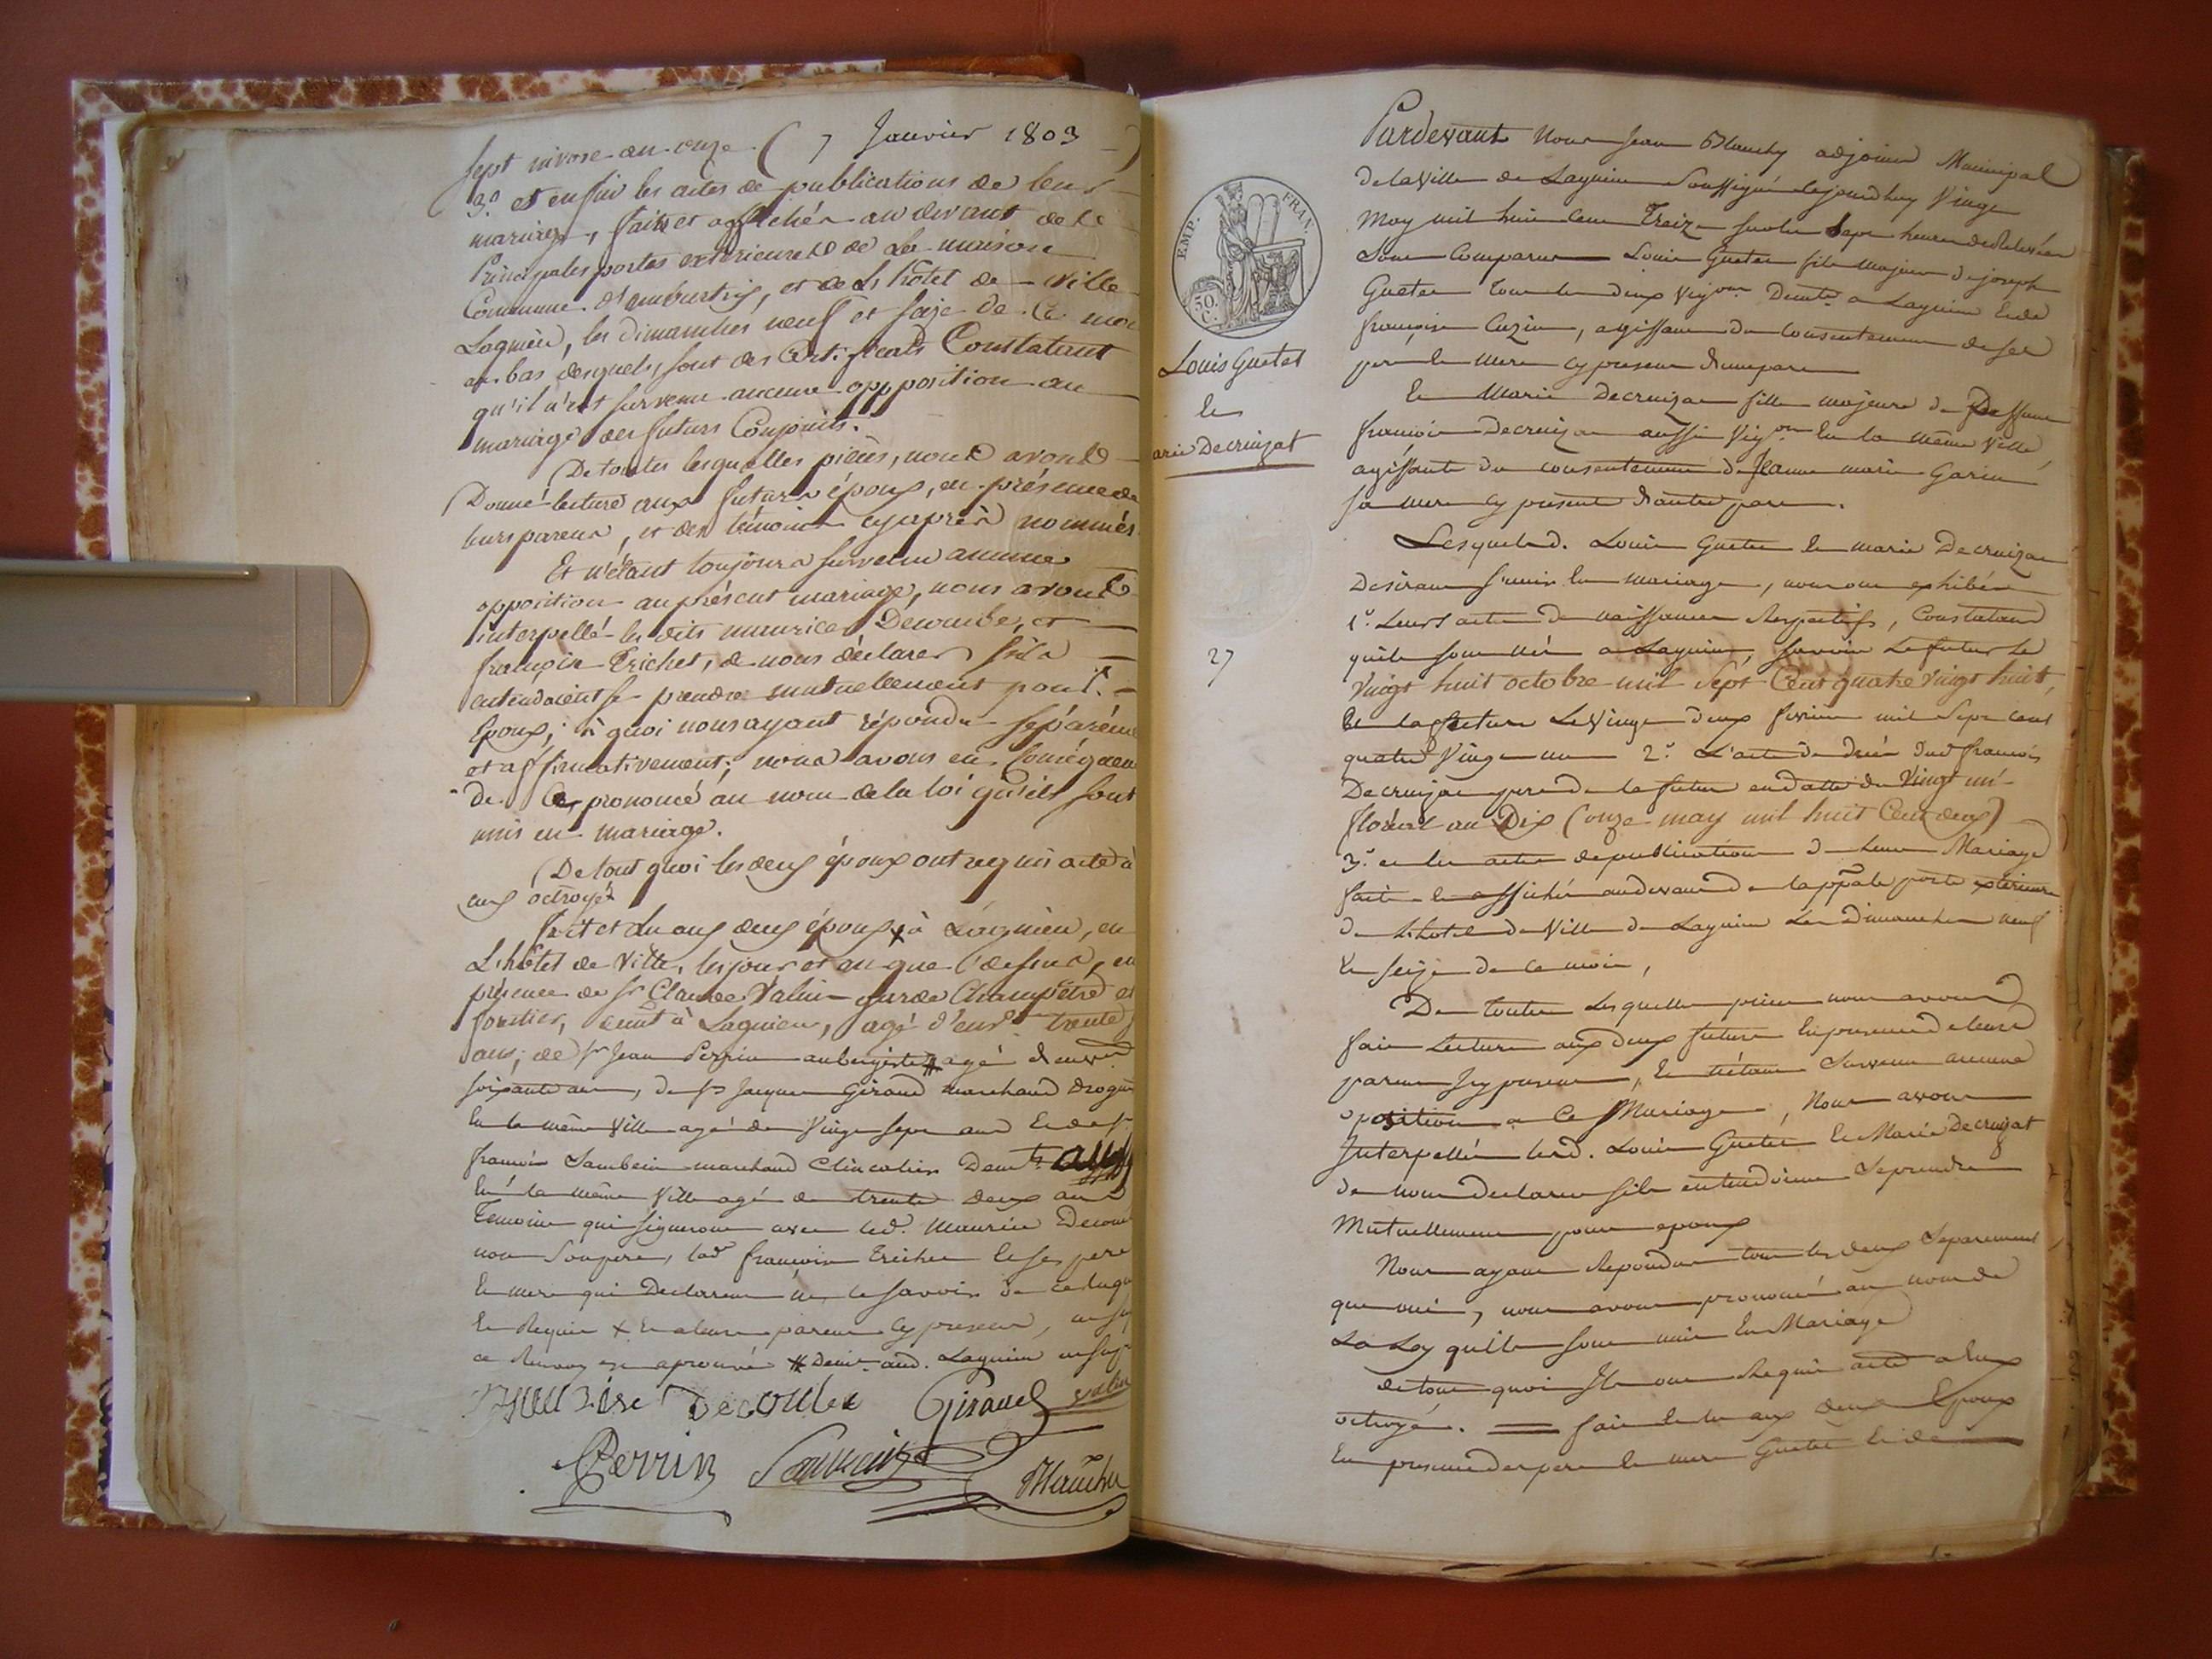 sept nivose an onze. ( 7 Janvier 1803 )
3.° et enfin les actes de publications de leur
mariage, faits et affichés au devant de la
Principales portes exterieures de la maison
Commune d'ambutrix, et de L'hôtel de Ville
Lagnieu, les dimanches neuf et seize de Ce moi
au bas desquels, sont des Certificats Constatant
qu'il n'est survenu aucune opposition au
mariage des futurs Conjoints.
De toutes lesquelles pièces, nous avons
Donné lecture aux futurs époux, en présence de
leurs parens, et des témoins cyaprès nommés
Et n'étant toujours survenu aucune
opposition au présent mariage, nous avons
interpellé les dits maurice Decoule, et
françoise Trichet, de nous déclarer s'ils
entendoient se prendre mutuellement pour
Epoux; à quoi nous ayant répondu séparém
et affirmativement; nous avons en
de Ce, prononcé au nom de la loi qu'ils sont
unis en mariage.
De tout quoi les deux époux ont requis acte à
eux octroyé
fait et lu aux deux époux x à Lagnieu, en
L'hôtel de Ville, les jour et an que dessus, en
présence de Sr Claude Valin garde Champêtre et
forestier, demt à Lagnieu, agé d'envn trente
ans; de Sr Jean Perrin aubergiste # agé d'envn
soixante ans, de Sr Jacques Giraud marchand
En la même Ville agé de Vingt sept ans Et de Sr
françois marchand Demt
En la même Ville agé de trente deux ans
Temoins qui signeront avec led. Maurice Decoule
non Son pere, lad françoise Trichet Et ses pere
Et mere qui Declarent ne le savoir de ce
Et Requis x Et a leurs parens cy presens,
ce Renvoy est aprouvé # Demt aud. Lagnieu
Maurise Decoule Giraud Valin
Perrin Blanchy
Pardevant Nous Jean Blanchy adjoint Municipal
De la Ville de Lagnieu Soussigné Cejourdhuy Vingt
May mil huit cent Treize sur les Sept heures de Relevée
Sont Comparus Louis Guetet fils majeur de joseph
Guetet tous les deux Vignons Demts a Lagnieu Et de
françoise Cuzin, agissant du Consentement de ses
pere Et mere cy presens D'une part
Et Marie Decruizat fille majeure de Deffunt
françois Decruizat aussi Vignon En la même Ville
agissante du consentement de Jeanne marie Garin
sa mere cy presente D'autre part.
Lesquels d. Louis Guetet Et marie Decruizat
Desirant s'unir En mariage, nous ont exhibés
1.° Leurs actes de naissances Respectifs, Constatant
quils sont nés a Lagnieu, savoir Le futur Le
Vingt huit octobre mil sept Cent quatre Vingt huit,
Et la future Le Vingt deux fevrier mil Sept cent
quatre Vingt un 2.° L'acte de decès dud françois
Decruizat pere de la future en datte du Vingt un
floréal an Dix (onze may mil huit Cent deux)
3.° et les actes de publications de Leur Mariage
faits Et affichés audevant de la pple porte exterieure
de L'hotel de Ville de Lagnieu Les Dimanches neuf
Et seize de ce mois,
De toutes Lesquelles pieces nous avons
fait Lecture aux deux futurs En presence de leurs
parens cy presens, Et n'étant Survenu aucune
oposition a Ce Mariage, Nous avons
Interpellé lesd. Louis Guetet Et Marie Decruizat
de nous Declarer sils entendoient Se prendre
Mutuellement pour epoux
Nous ayant Repondu tous les deux Separement
que oui, nous avons prononcé au nom de
La Loy quils sont unis En Mariage
de tout quoi Ils ont Requis acte a Eux
octroyé. = fait Et lu aux deux Epoux
En presence des pere Et mere Guetet Et de
EMP. FRAN.
50. C.
Louis Guetet
Et
arie Decruizat
27